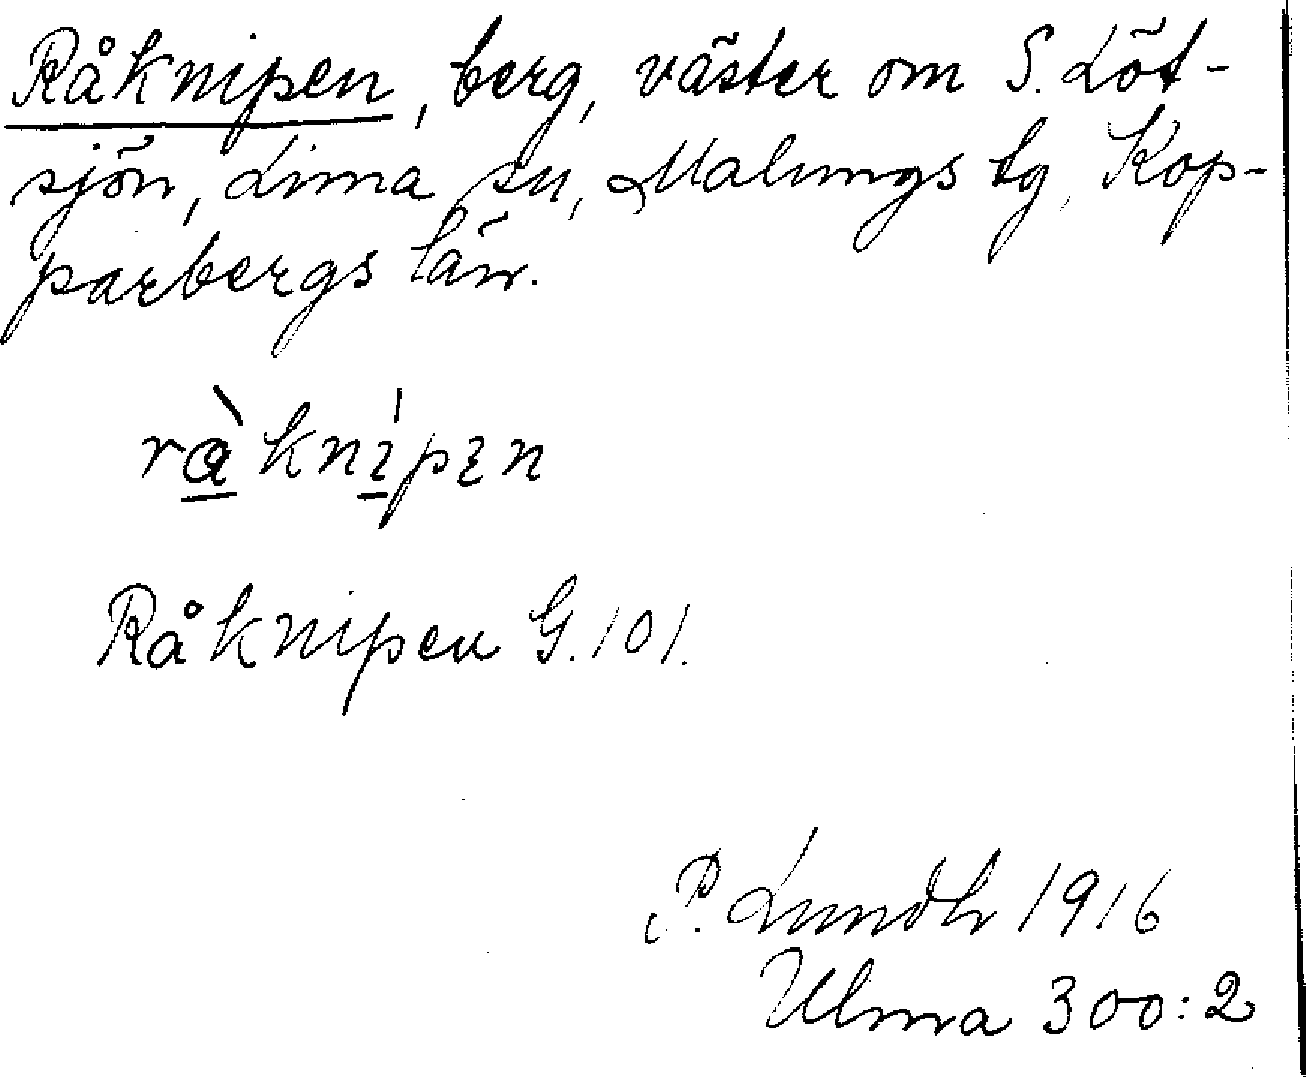 Råknipen, berg, väster om S. Löt-
sjön, Lima sn, Malungs tg, Kop-
parbergs län.
råknipen
Råknipen G. 101.
P. Lundh 1916
Ulma 300:2